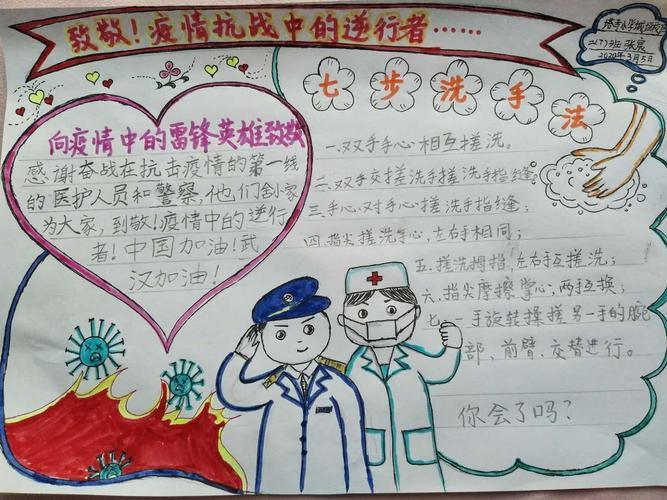 致敬！疫情抗战中的逆行者……
二(7)班 张宸
2020年3月5日
向疫情中的雷锋英雄致敬
感谢奋战在抗击疫情的第一线
的医护人员和警察，他们舍家
为大家，到敬！疫情中的逆行
者！中国加油！武
汉加油！
七步洗手法
一.双手手心相互搓洗。
二.双手交搓洗手搓洗手指缝；
三.手心对手心搓洗手指缝；
四.指尖搓洗手心，左右手相同；
五.搓洗拇指，左右手互搓洗；
六.指尖摩擦掌心，两手互换；
七.一手旋转揉搓另一手的腕
部、前臂、交替进行。
你会了吗？